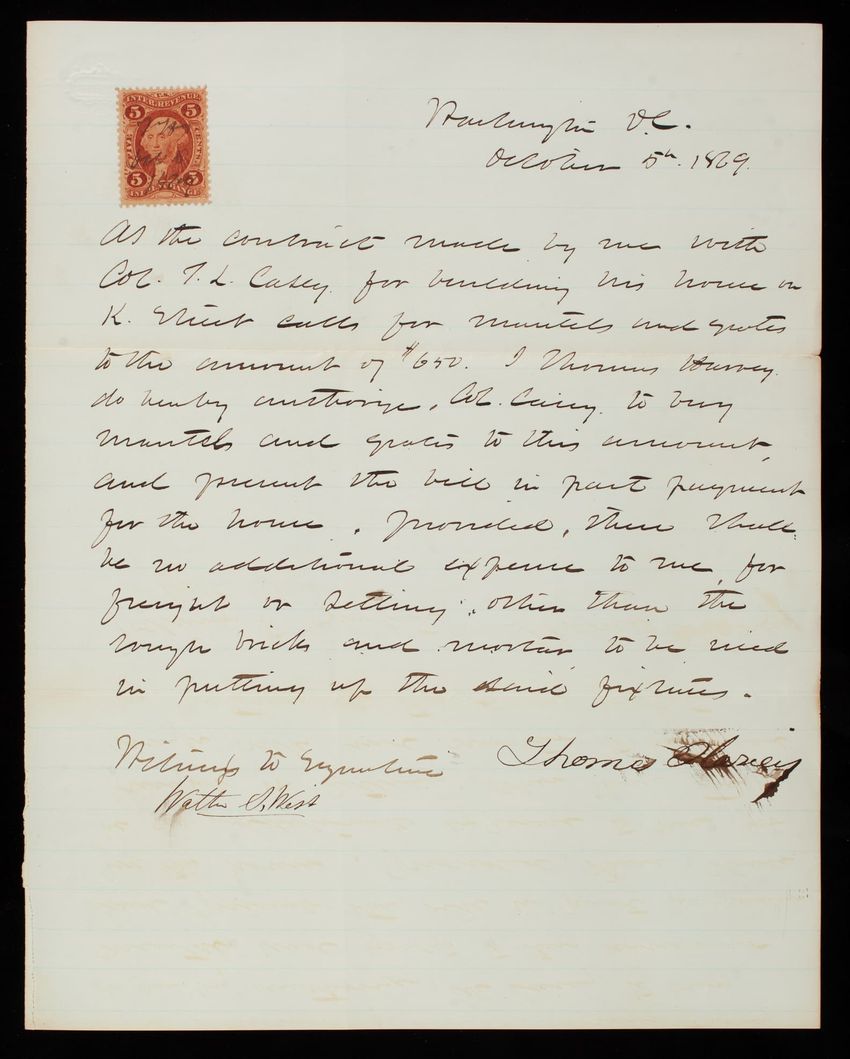 U.S.
INTER. REVENUE
5 5
FIVE CENTS
5 5
Washington D.C.
October 5th. 1869.
As the contract made by me with
Col. T. L. Casey for building his house on
K. Street calls for mantels and grates
to the amount of $650. I Thomas Harvey
do hereby authorize, Col. Casey to buy
mantels and grates to this amount,
and present the bill in part payment
for the house, provided, there shall
be no additional expense to me, for
freight or setting, other than the
rough bricks and mortar, to be used
in putting up the said fixtures.
Witness to Signature Thomas Harvey
Walter S. West